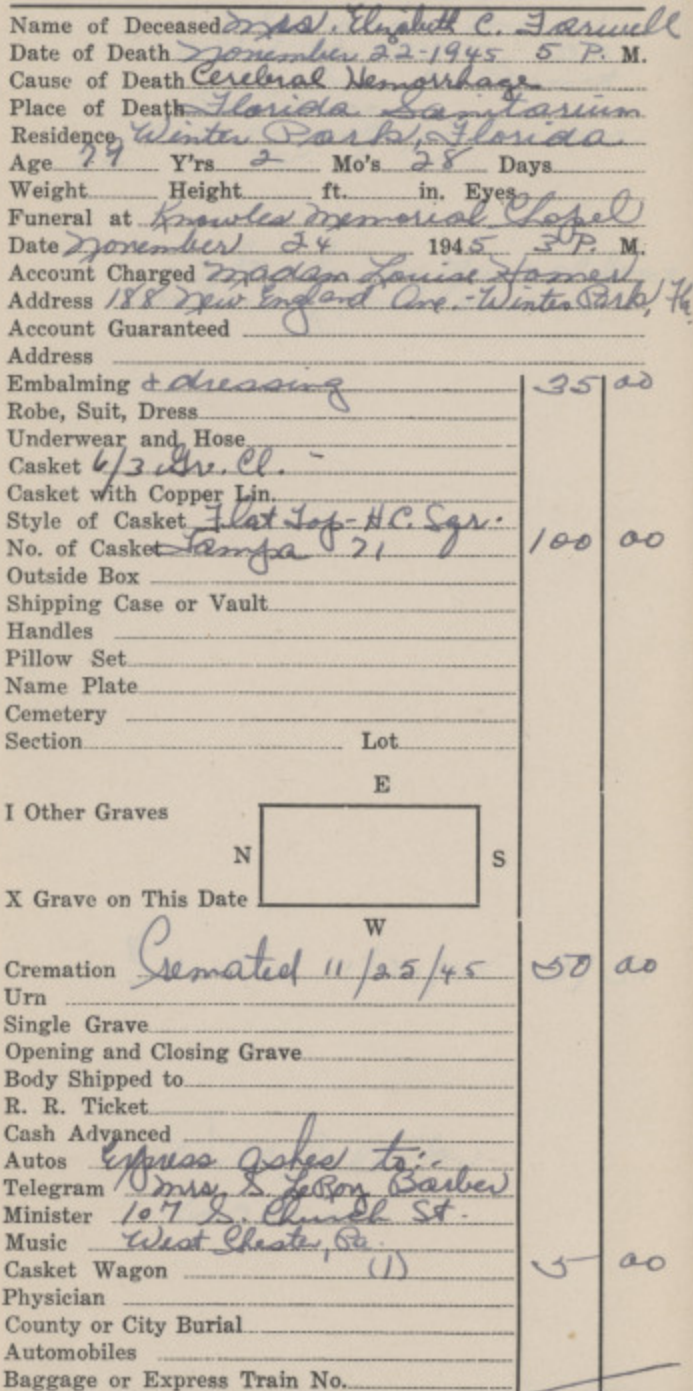 Name of Deceased Mrs. Elizabeth C. Farwell
Date of Death November 22-1945 5 P. M.
Cause of Death Cerebral Hemorrhage
Place of Death Florida Sanitarium
Residence Winter Park, Florida
Age 77 Y'rs 2 Mo's 28 Days
Weight Height ft. in. Eyes
Funeral at Knowles Memorial Chapel
Date November 24 1945 3 P. M.
Account Charged Madam Louise Homer
Address 188 New England Ave. - Winter Park, Fla.
Account Guaranteed
Address
Embalming & dressing 35 00
Robe, Suit, Dress
Underwear and Hose
Casket 6/3 Gre. Cl. -
Casket with Copper Lin.
Style of Casket Flat Top - H.C. Sqr.
No. of Casket Tampa 71 100 00
Outside Box
Shipping Case or Vault
Handles
Pillow Set
Name Plate
Cemetery
Section Lot
E
I Other Graves
N S
X Grave on This Date
W
Cremation Cremated 11/25/45 50 00
Urn
Single Grave
Opening and Closing Grave
Body Shipped to
R. R. Ticket
Cash Advanced
Autos Express ashes to:-
Telegram Mrs. S. LeRoy Barber
Minister 107 S. Church St.
Music West Chester, Pa.
Casket Wagon (1) 5 00
Physician
County or City Burial
Automobiles
Baggage or Express Train No.